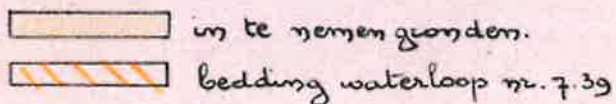 in te nemen gronden.
bedding waterloop nr. 7.39